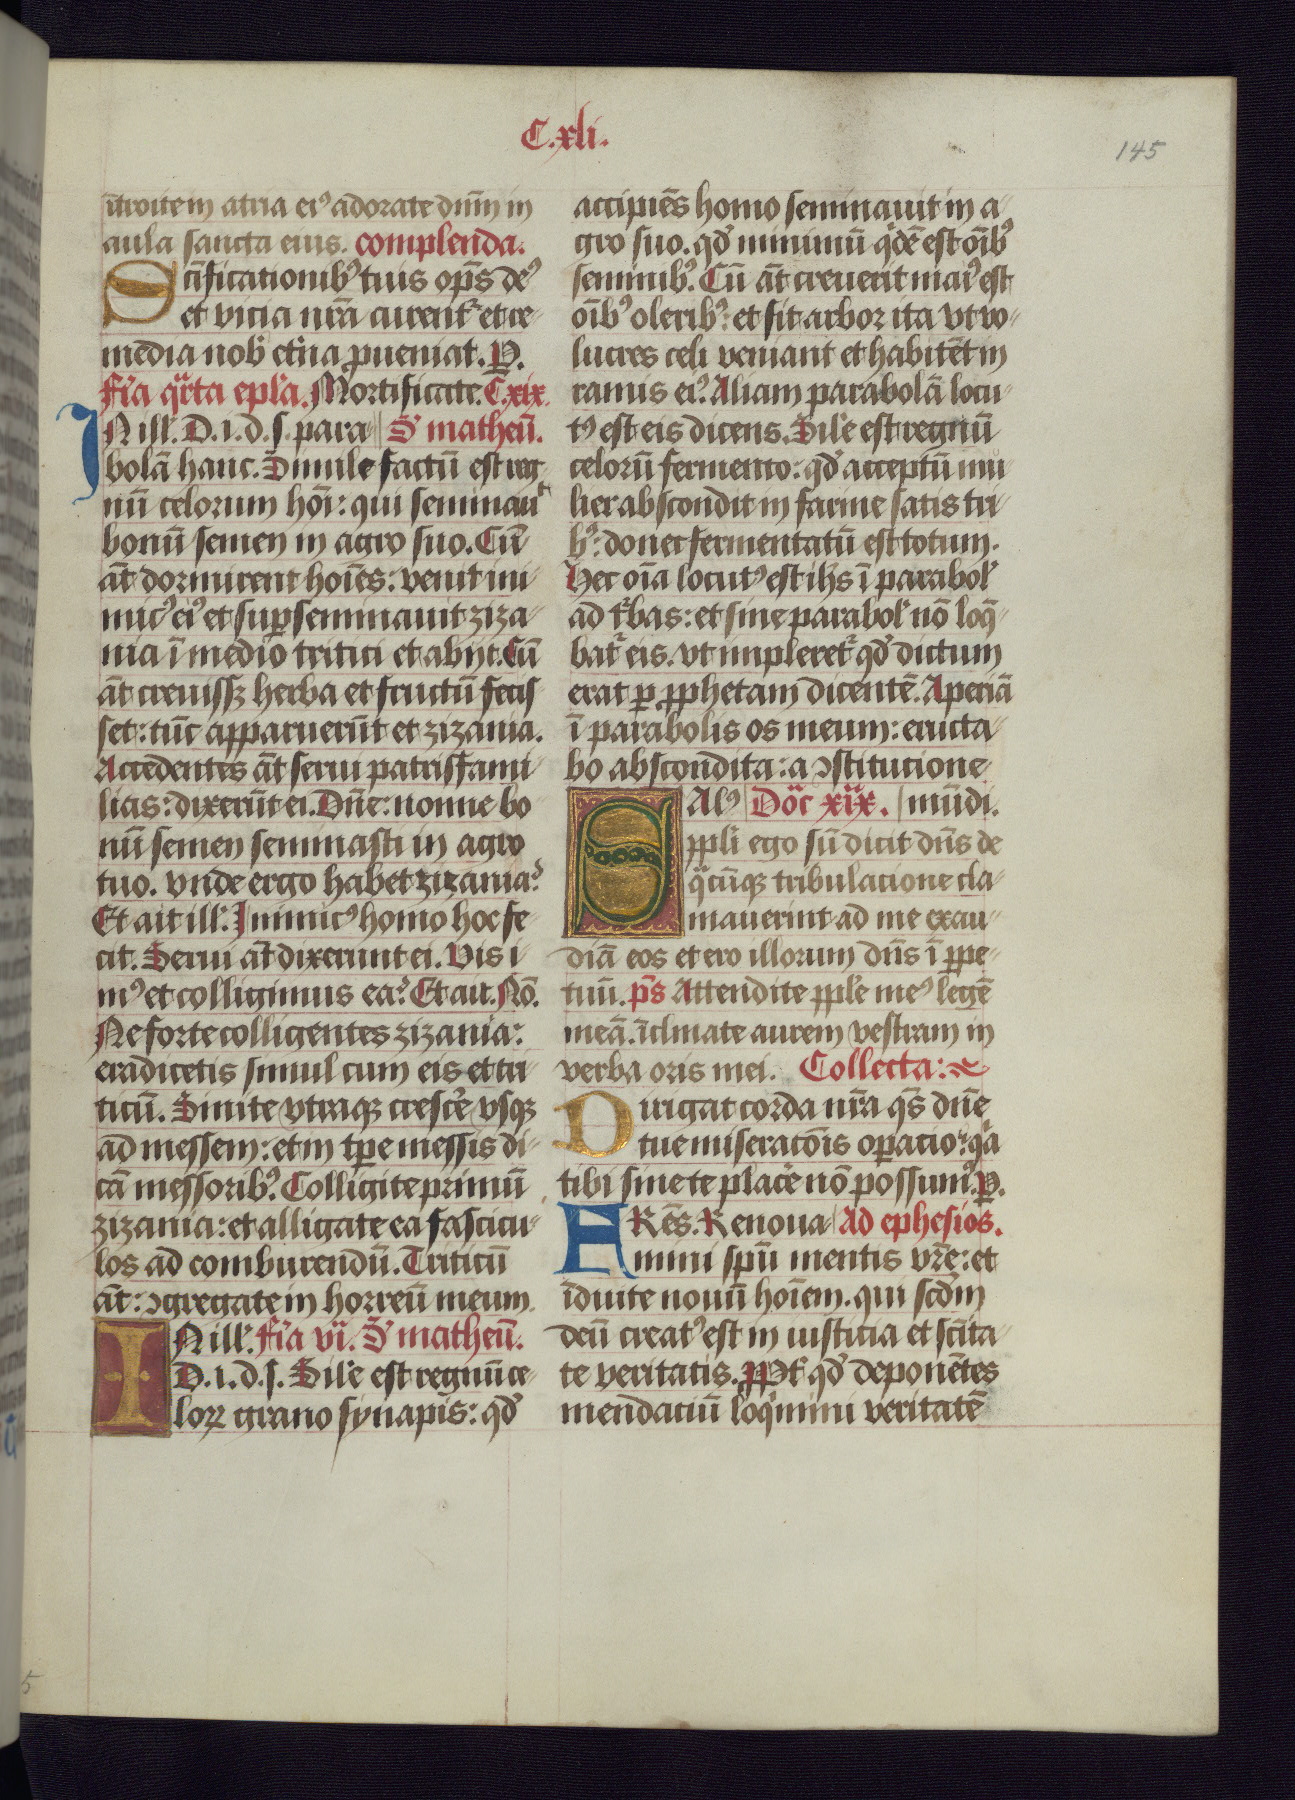 C.xli.
145
ītroite in atria ei⁹ adorate dn̄m in
aula sancta eius. complenda.
Scīficationib⁹ tuis op̄s de⁹
et vicia nr̄a curent᷑ et re-
media nob̾ et̾na ꝓueniat. P.
Fīa qͣrta epl̾a. Mortificate. C.xix.
IN ill̾. D. i. d. s. para- S̾ matheū.
bolā hanc. Simile factū est reg-
nū celorum hoī: qui seminauͭ
bonū semen in agro suo. Cū
āt dormirent hoīes: venit ini-
mic⁹ ei⁹ et suꝑseminauit ziza-
nia ī medio tritici et abijt. Cū
āt creuissꝫ herba et fructū fecis-
set: tūc apparuerūt et zizania.
Accedentes āt serui patrisfami-
lias: dixerūt ei. Dn̄e: nonne bo-
nū semen seminasti in agro
tuo. vnde ergo habet zizania?
Et ait ill̾. Inimic⁹ homo hoc fe-
cit. Serui āt dixerunt ei. Vis i-
m⁹ et colligimus ea? Et ait. Nō.
Ne forte colligentes zizania:
eradicetis simul cum eis et tri-
ticū. Sinite vtraqꝫ cresc̾e vsqꝫ
ad messem: et in tꝑe messis di-
cā messorib⁹. Colligite primū
zizania: et alligate ea fascicu-
los ad comburendū. Triticū
āt: ꝯgregate in horreū meum.
IN ill̾. Fīa vi. S̾ matheū.
D. i. d. s. Sil̾e est regnū ce-
loꝝ grano synapis: qd̾
accipiēs homo seminauit in a-
gro suo. qd̾ minimū qͥdē est oīb⁹
seminib⁹. Cū āt creuerit mai⁹ est
oīb⁹ olerib⁹: et fit arbor ita vt vo-
lucres celi veniant et habitēt in
ramis ei⁹. Aliam parabolā locu-
t⁹ est eis dicens. Sil̾e est regnū
celorū fermento: qd̾ acceptū mu-
lier abscondit in farine satis tri-
b⁹: donec fermentatū est totum.
Hec oīa locut⁹ est ihs ī parabol̾
ad t᷑bas: et sine parabol̾ nō loq̄-
bat᷑ eis. vt impleret᷑ qd̾ dictum
erat ꝑ ꝓphetam dicentē. Aperiā
ī parabolis os meum: eructa-
bo abscondita: a ꝯstitucione
SAl⁹ Doīc xix. mūdi.
ppli ego sū dicit dn̄s de
qͣcūqꝫ tribulacione cla-
mauerint ad me exau-
diā eos et ero illorum dn̄s ī ꝑpe-
tuū. p̄s Attendite pple me⁹ legē
meā. īclinate aurem vestram in
verba oris mei. Collecta:
Dirigat corda nr̄a qs̄ dn̄e
tue miseracōis oꝑacio: qͥa
tibi sine te plac̾e nō possum⁹. P.
FRēs. Renoua- Ad ephesios.
mini spū mentis vr̄e: et
īduite nouū hoīem. qui scd̾m
deū creat⁹ est in iusticia et scīta-
te veritatis. ꝓpt̾ qd̾ deponētes
mendaciū loqͥmini veritatē